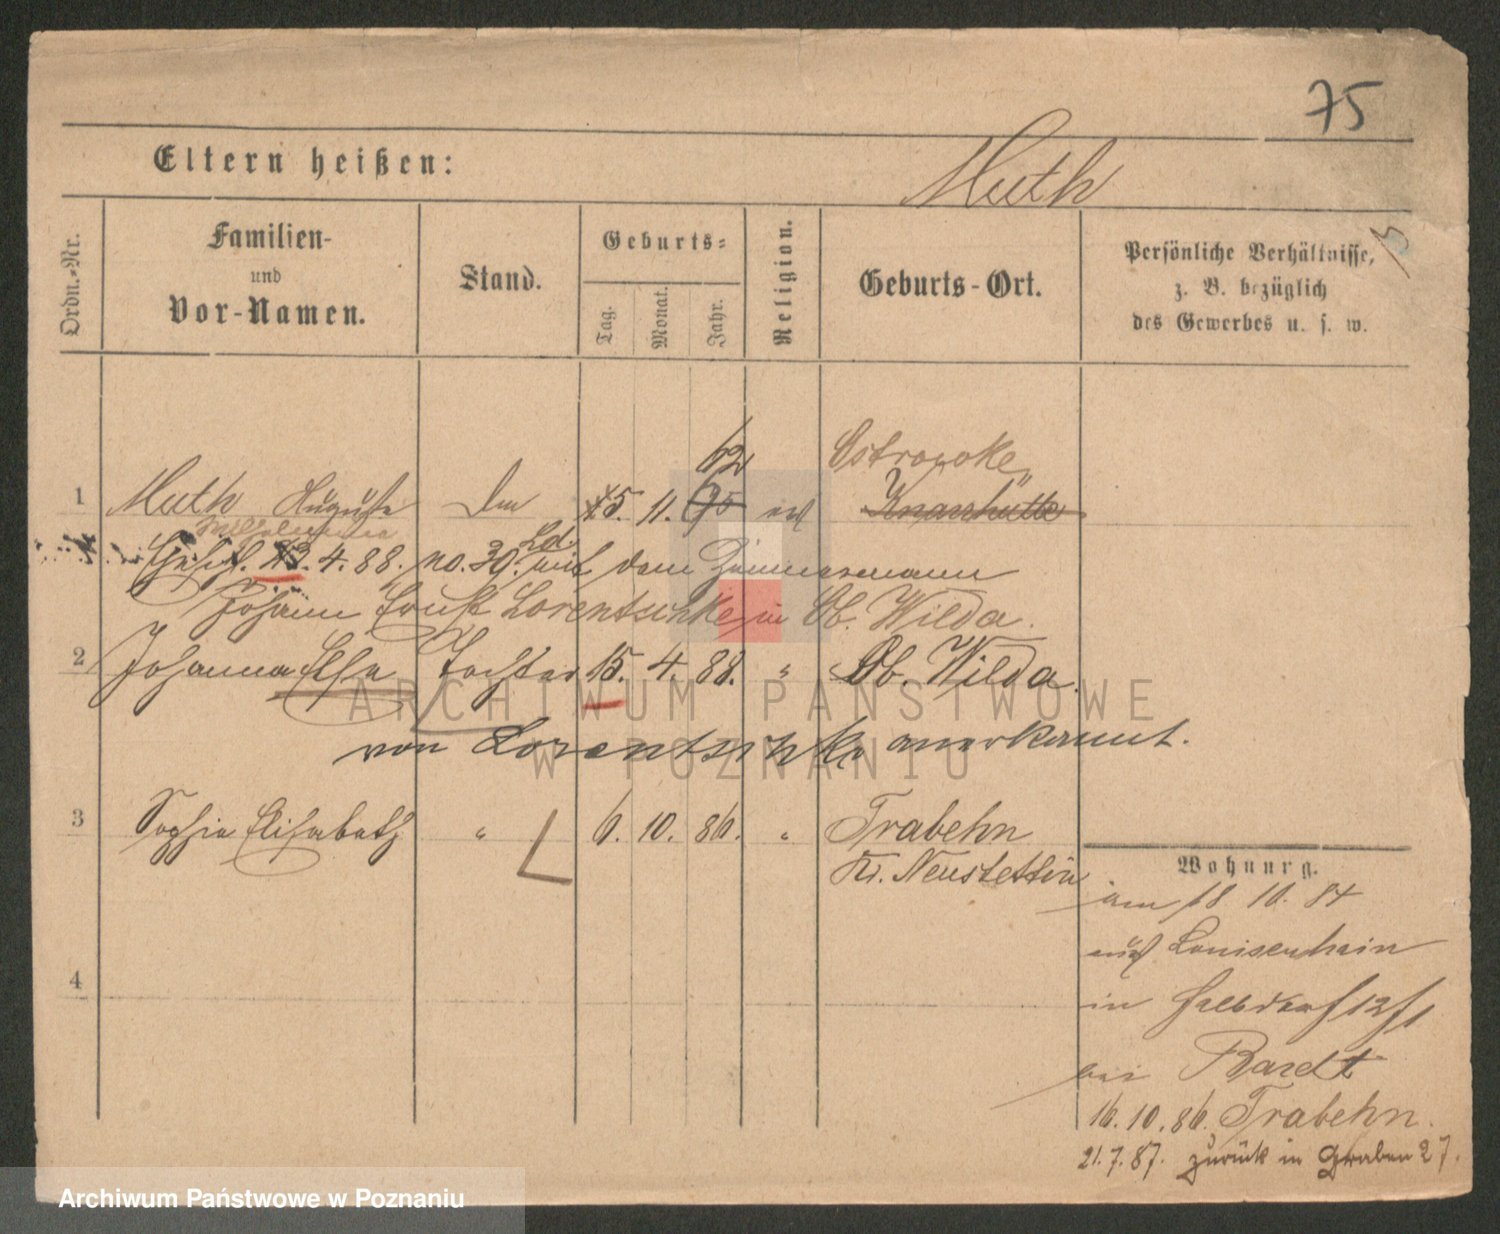 75
Eltern heißen: Muth
Ordn.-Nr.
Familien-
und
Vor-Namen.
Stand.
Geburts-
Tag.
Monat.
Jahr.
Religion.
Geburts-Ort.
Persönliche Verhältnisse,
z. B. bezüglich
des Gewerbes u. s. w.
62
Ostrowoke
1 Muth Auguste 15. 11. 65 Knarrhutte
Wilhelmine
Ld.
Gesch. 23. 4. 88. no. 39. mit dem Zimmermann
Johann Ernst Lorentschke in Ob. Wilda.
2 Johanna Elsa Tochter 15. 4. 88. " Ob. Wilda.
von Lorentschke anerkannt.
3 Sophie Elisabeth " 6. 10. 86. " Trabehn
Kr. Neustettin
4
Wohnung.
am 18 10. 84
aus Louisenhain
in Halbdorf 12/1
bei Bardt
16. 10. 86. Trabehn.
21. 7. 87. zurück in Graben 27.
ARCHIWUM PAŃSTWOWE
W POZNANIU
Archiwum Państwowe w Poznaniu